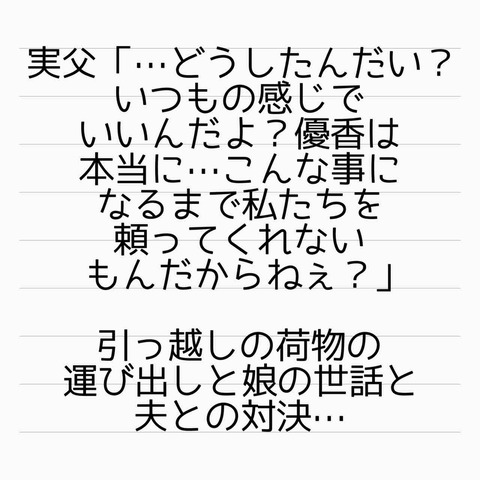 実父「…どうしたんだい？
いつもの感じで
いいんだよ？優香は
本当に…こんな事に
なるまで私たちを
頼ってくれない
もんだからねぇ？」
引っ越しの荷物の
運び出しと娘の世話と
夫との対決…